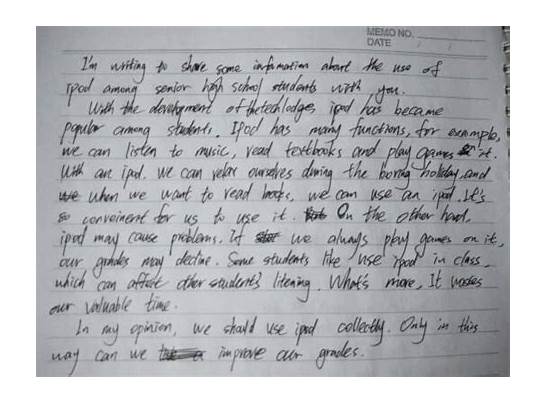 MEMO NO.
DATE / /
I'm writing to share some information about the use of
ipod among senior high school students with you.
With the development of thetechlodges, ipod has became
popular among students. Ipod has many functions, for example,
we can listen to music, read textbooks and play games it.
With an ipod. we can relax ourselves during the boring holiday, and
when we want to read books, we can use an ipod. It's
so conveinent for us to use it. On the other hand,
ipod may cause problems. If we always play games on it,
our grades may decline. Some students like use ipod in class,
which can affect other students' litening. What's more, It wastes
our valuable time.
In my opinion, we should use ipod collectly. Only in this
way can we improve our grades.